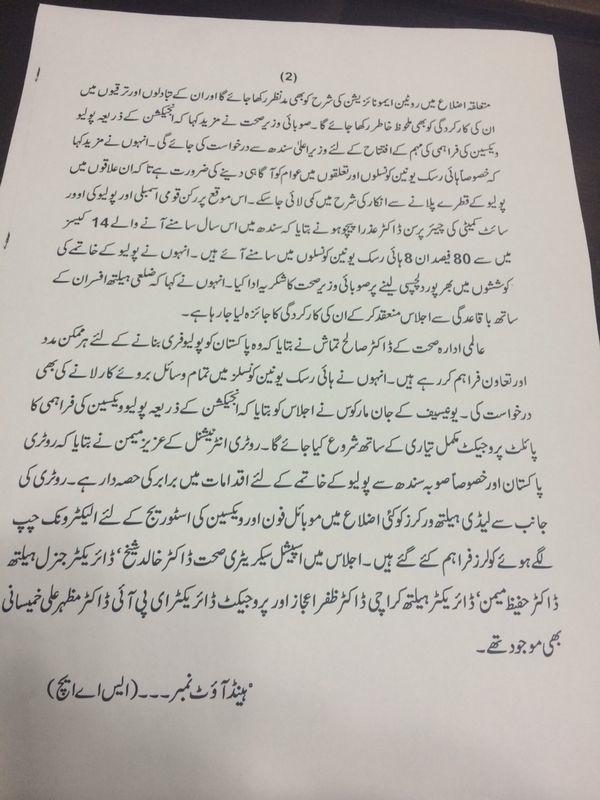 (2)
متعلقہ اضلاع میں روٹین ایمونائزیشن کی شرح کو بھی مدنظر رکھا جائے گا اور ان کے تبادلوں اور ترقیوں میں
ان کی کارکردگی کو بھی ملحوظ خاطر رکھا جائے گا۔ صوبائی وزیر صحت نے مزید کہا کہ انجیکشن کے ذریعہ پولیو
ویکسین کی فراہمی کی مہم کے افتتاح کے لئے وزیر اعلیٰ سندھ سے درخواست کی جائے گی۔ انہوں نے مزید کہا
کہ خصوصاً ہائی رسک یونین کونسلوں اور تعلقوں میں عوام کو آگاہی دینے کی ضرورت ہے تا کہ ان علاقوں میں
پولیو کے قطرے پلانے سے انکار کی شرح میں کمی لائی جا سکے۔ اس موقع پر رکن قومی اسمبلی اور پولیو کی اوور
سائٹ کمیٹی کی چیئر پرسن ڈاکٹر عذرا پیچوہو نے بتایا کہ سندھ میں اس سال سامنے آنے والے 14 کیسز
میں سے 80 فیصد ان 8 ہائی رسک یونین کونسلوں میں سامنے آئے ہیں۔ انہوں نے پولیو کے خاتمے کی
کوششوں میں بھرپور دلچسپی لینے پر صوبائی وزیر صحت کا شکریہ ادا کیا۔ انہوں نے کہا کہ ضلعی ہیلتھ افسران کے
ساتھ باقاعدگی سے اجلاس منعقد کر کے ان کی کارکردگی کا جائزہ لیا جا رہا ہے۔
عالمی ادارہ صحت کے ڈاکٹر صالح تماش نے بتایا کہ وہ پاکستان کو پولیو فری بنانے کے لئے ہر ممکن مدد
اور تعاون فراہم کر رہے ہیں۔ انہوں نے ہائی رسک یونین کونسلز میں تمام وسائل بروئے کار لانے کی بھی
درخواست کی۔ یونیسیف کے جان مارکوس نے اجلاس کو بتایا کہ انجیکشن کے ذریعہ پولیو ویکسین کی فراہمی کا
پائلٹ پروجیکٹ مکمل تیاری کے ساتھ شروع کیا جائے گا۔ روٹری انٹرنیشنل کے عزیز میمن نے بتایا کہ روٹری
پاکستان اور خصوصاً صوبہ سندھ سے پولیو کے خاتمے کے لئے اقدامات میں برابر کی حصہ دار ہے۔ روٹری کی
جانب سے لیڈی ہیلتھ ورکرز کو کئی اضلاع میں موبائل فون اور ویکسین کی اسٹوریج کے لئے الیکٹرونک چپ
لگے ہوئے کولرز فراہم کئے گئے ہیں۔ اجلاس میں اسپیشل سیکریٹری صحت ڈاکٹر خالد شیخ‘ ڈائریکٹر جنرل ہیلتھ
ڈاکٹر حفیظ میمن‘ ڈائریکٹر ہیلتھ کراچی ڈاکٹر ظفر اعجاز اور پروجیکٹ ڈائریکٹر ای پی آئی ڈاکٹر مظہر علی خمیسانی
بھی موجود تھے۔
ہینڈ آؤٹ نمبر۔۔۔(ایس اے ایچ)